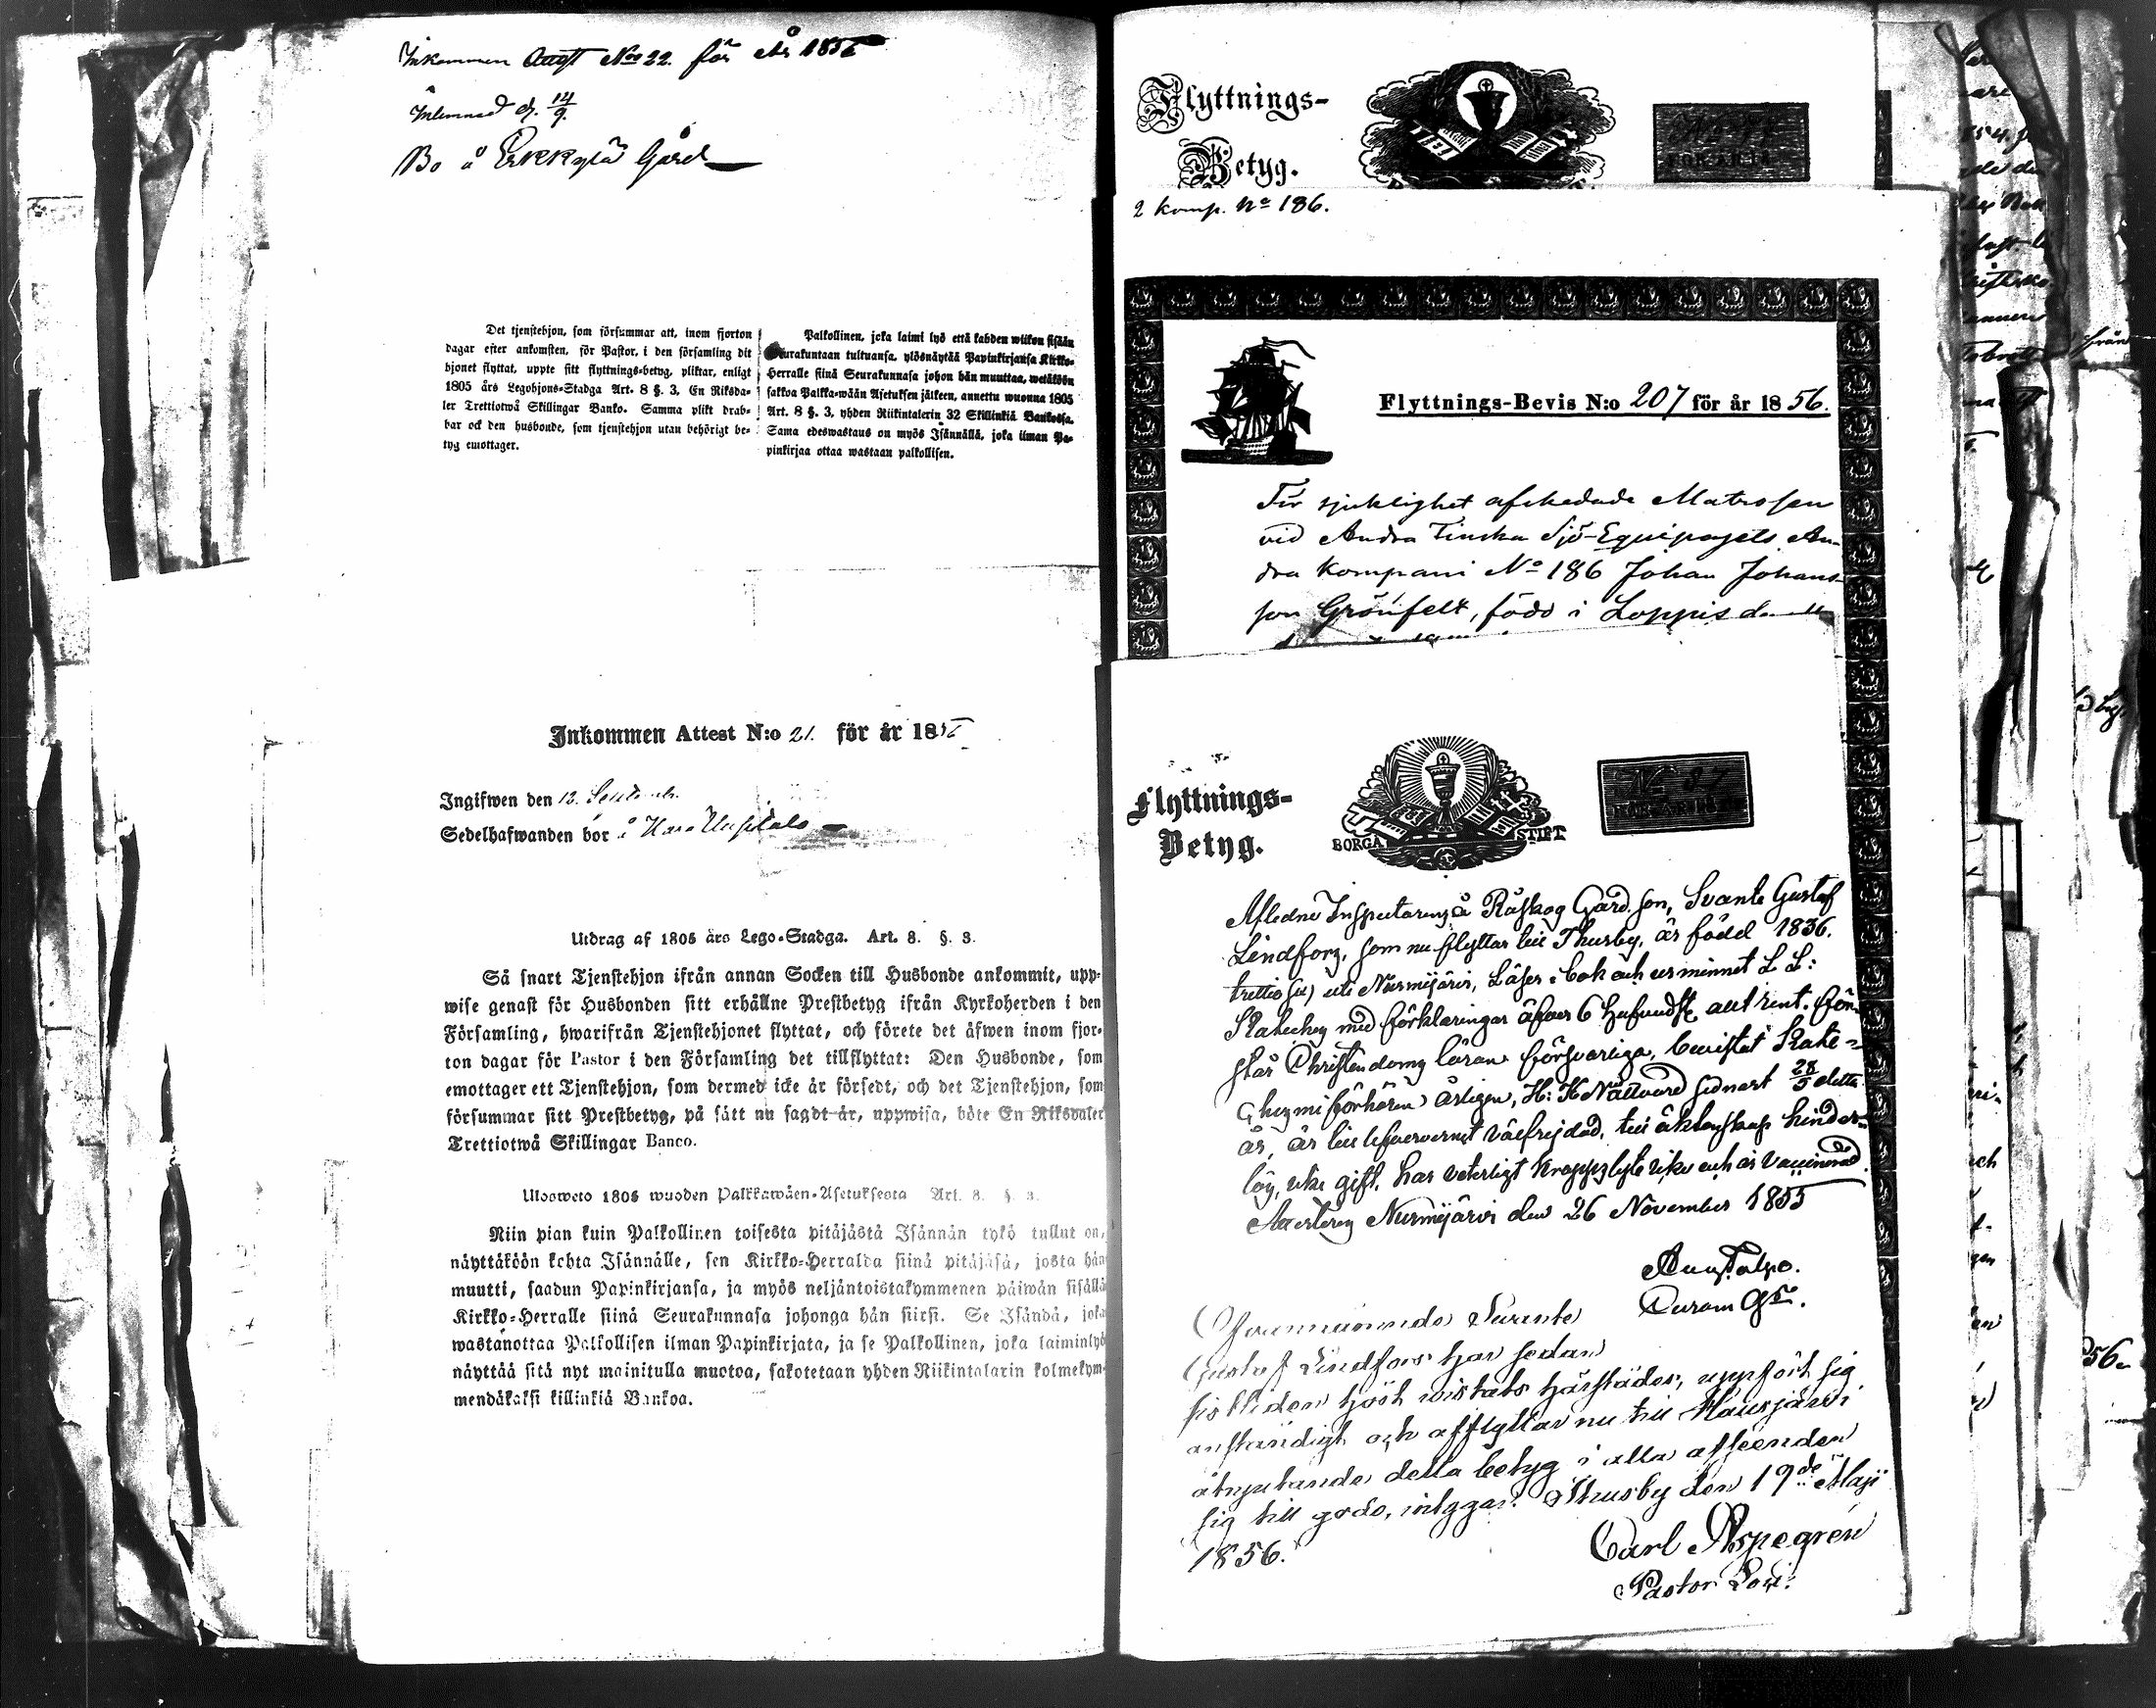 Inkommen Attest No 22. för År 1856
Inlemnad d. 14/9.
Bo å Erkkylä Gård
Det tjenstehjon, som försummar att, inom fjorton
dagar efter ankomsten, för Pastor, i den församling dit
hjonet flyttat, uppte sitt flyttnings-betyg, pliktar, enligt
1805 års Legohjons-Stadga Art. 8 §. 3, En Riksda-
ler Trettiotwå Skillingar Banko. Samma plikt drab-
bar ock den husbonde, som tjenstehjon utan behörigt be-
tyg emottager.
Palkollinen, joka laimi lyö että kahden wiikon sisään
Seurakuntaan tultuansa, ylösnäytää Papinkirjansa Kirkko-
Herralle siinä Seurakunnasa johon hän muuttaa, wetäköön
sakkoa Palkka-wään Asetuksen jälkeen, annettu wuonna 1805
Art. 8 §. 3, yhden Riikintalerin 32 Skillinkiä Bankossa.
Sama edeswastaus on myös Isännällä, joka ilman Pa-
pinkirjaa ottaa wastaan palkollisen.
Inkommen Attest N:o 21. för år 1856
Ingifwen den 12. Septemb.
Sedelhafwanden bor å
Utdrag af 1805 års Lego-Stadga. Art. 8. §. 3.
Så snart Tjenstehjon ifrån annan Socken till Husbonde ankommit, upp-
wise genast för Husbonden sitt erhållne Prestbetyg ifrån Kyrkoherden i den
Församling, hwarifrån Tjenstehjonet flyttat, och förete det äfwen inom fjor-
ton dagar för Pastor i den Församling det tillflyttat: Den Husbonde, som
emottager ett Tjenstehjon, som dermed icke är försedt, och det Tjenstehjon, som
försummar sitt Prestbetyg, på sätt nu sagdt är, uppwisa, böte En Riksdaler
Trettiotwå Skillingar Banco.
Ulosweto 1805 wuoden Palkkawäen-Asetuksesta Art. 8. §. 3.
Niin pian kuin Palkollinen toisesta pitäjästä Isännän tykö tullut on,
näyttäköön kohta Isännälle, sen Kirkko-Herralda siinä pitäjäsä, josta hän
muutti, saadun Papinkirjansa, ja myös neljäntoistakymmenen päiwän sisällä
Kirkko-Herralle siinä Seurakunnasa johonga hän siirsi. Se Isändä, joka
wastanottaa Palkollisen ilman Papinkirjata, ja se Palkollinen, joka laiminlyö
näyttää sitä nyt mainitulla muotoa, sakotetaan yhden Riikintalarin kolmekym-
mendäkaksi killinkiä Bankoa.
Flyttnings-
Betyg.
2 komp. No 186.
Flyttnings-Bevis N:o 207 för år 1856.
För sjuklighet afskedade Matrosen
vid Andra Finska Sjö-Equipagets An-
dra Kompani No 186 Johan Johans-
son Grönfelt, född i Loppis
Flyttnings-
Betyg.
BORGÅ STIFT
Afledne Inspectorens å Råskog Gård son, Svante Gustaf
Lindfors, som nu flyttar till Thusby, är född 1836.
trettiosex) uti Nurmijärvi, Läser i bok och ur minnet L L:
Kateches med förklaringar äfven 6 hufvudst.
står Christendoms läran försvarliga, bevistat Kate-
ches mi förhören årligen, H: H Nattvard sednast 28/5 detta
år, är till lefvernet välfrejdad, till äktenskap hinders-
lös, icke gift, har veterligt kroppslyte icke och är Vaccinerad.
Attesteras Nurmijärvi den 26 November 1855
Förenämnde Svante
Gustaf Lindfors har sedan
sistliden höst wistats härstädes, uppfört sig
anständigt och afflyttar nu till Hausjärvi
åtnjutande detta betyg i alla afseenden
sig till godo, intygar. Thusby den 19de Maji
1856.
Carl Aspegrén
Pastor Loci.